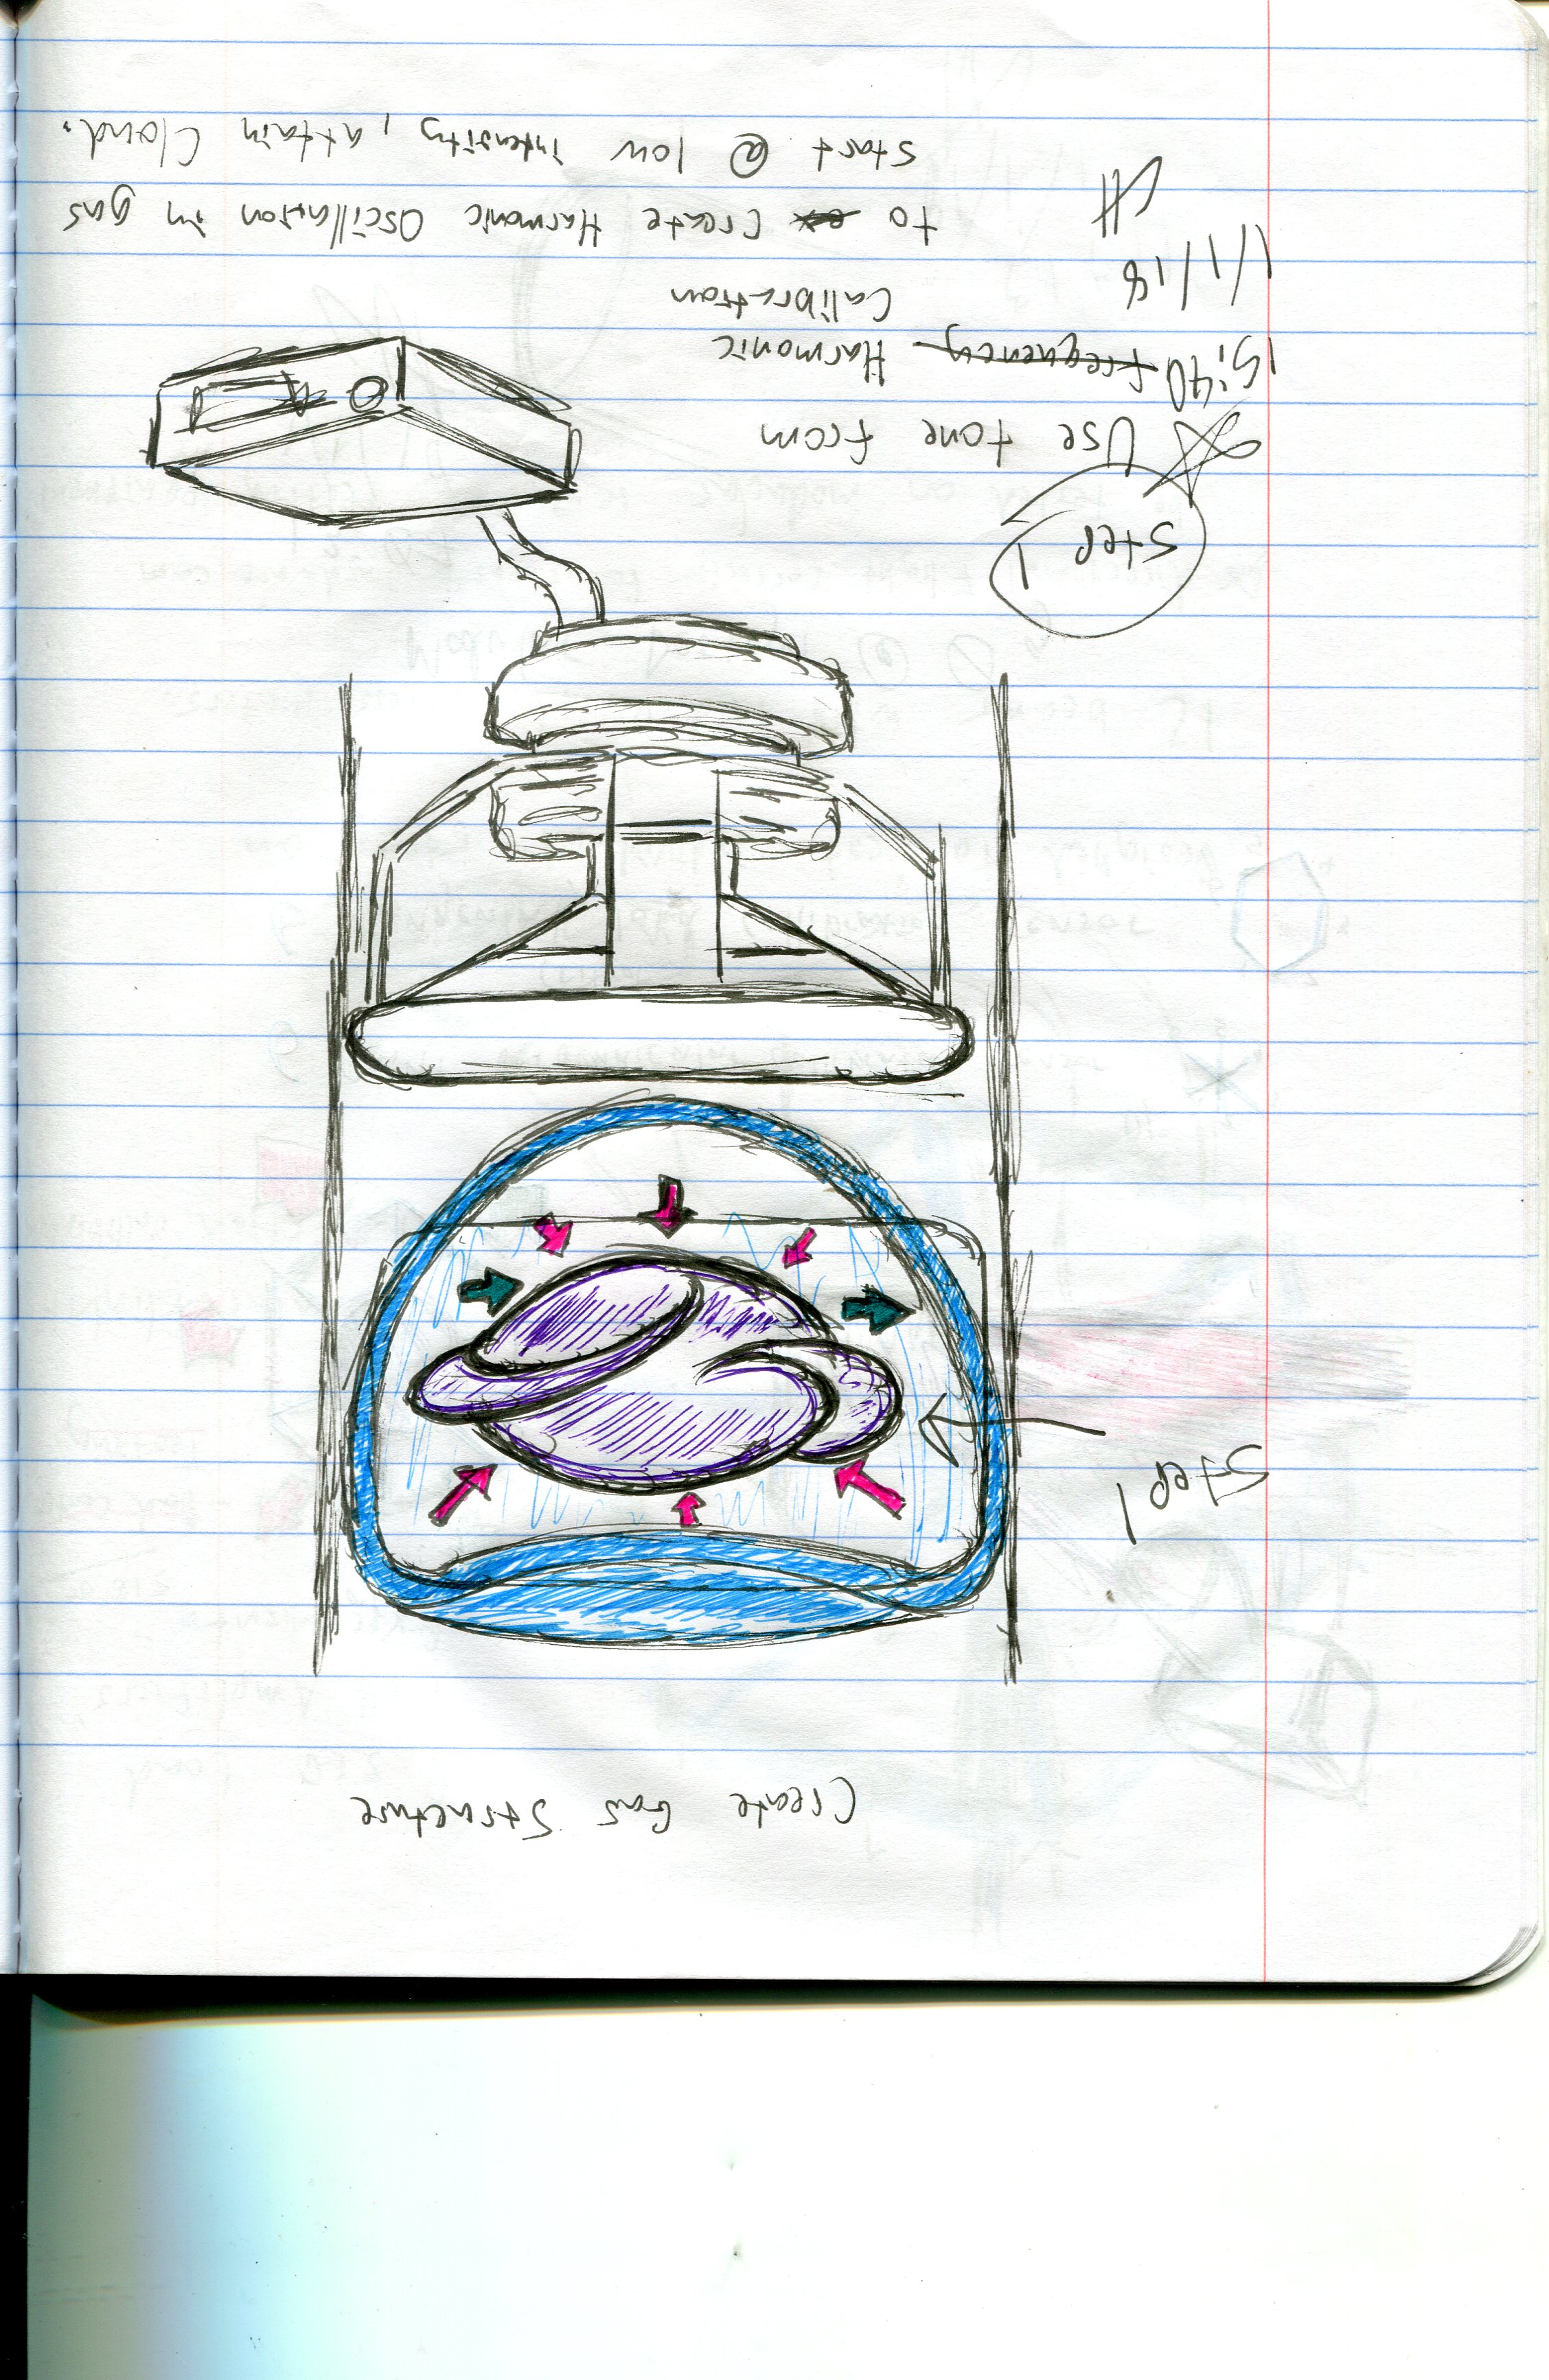 Create Gas Structure
Step 1
Step 1
Use tone from
15:40 frequency Harmonic
Calibration
1/1/18
to create Harmonic Oscillation in gas
start @ low intensity, attain Cloud.